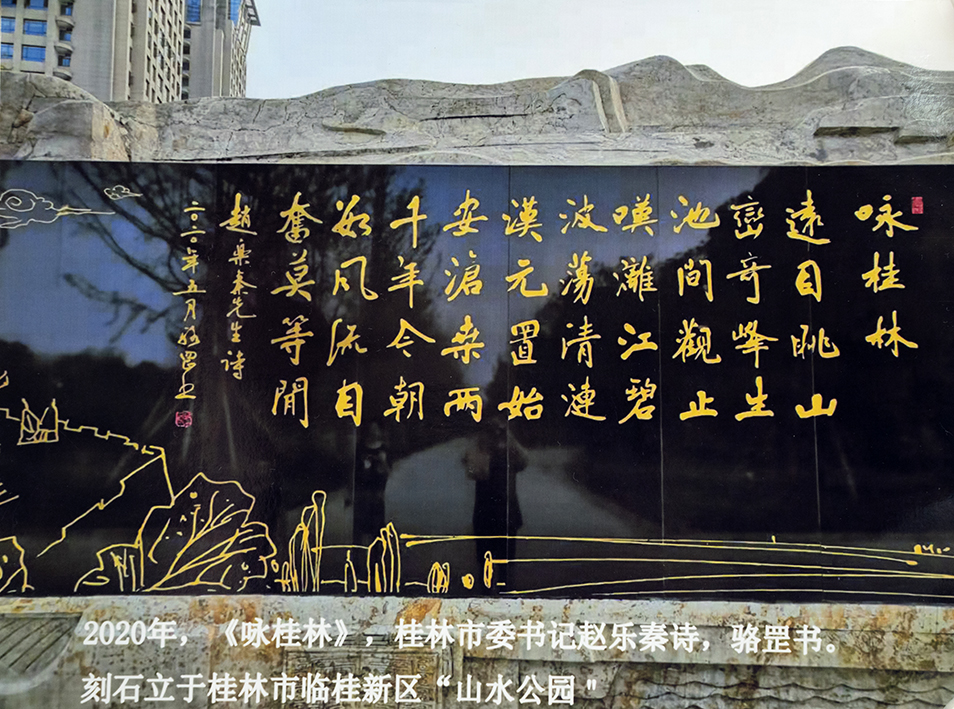 咏桂林
遠目眺山
巒奇峰生
池间觀止
嘆灕江碧
波蕩清漣
漢元置始
安滄桑两
千年今朝
数风流自
奮莫等閒
趙樂秦先生詩
二〇二〇年五月骆罡书
2020年，《咏桂林》，桂林市委书记赵乐秦诗，骆罡书。
刻石立于桂林市临桂新区“山水公园"